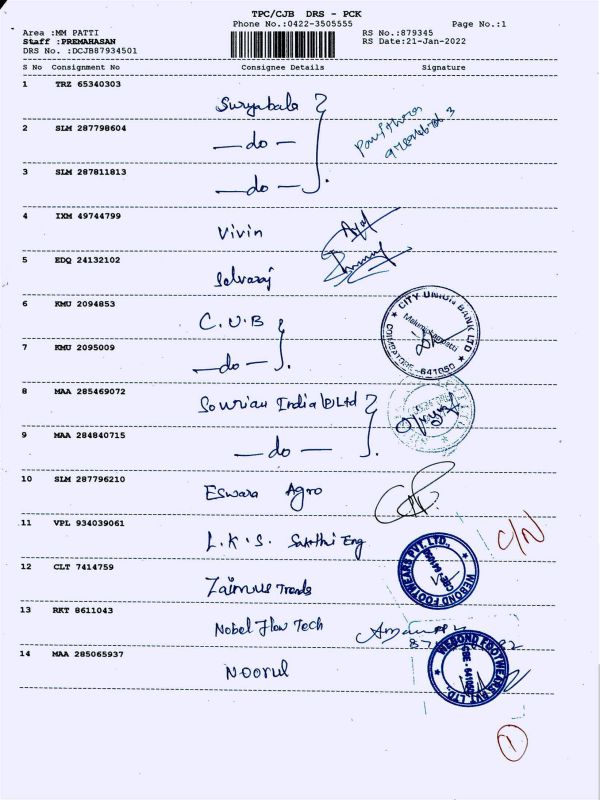 TPC/CJB DRS - PCK
Phone No.:0422-3505555 Page No.:1
Area :MM PATTI RS No.:879345
Staff :PREMAHASAN RS Date:21-Jan-2022
DRS No. :DCJB87934501
S No Consignment No Consignee Details Signature
1 TRZ 65340303
Suryabala
2 SLM 287798604
— do —
3 SLM 287811813
— do —
4 IXM 49744799
Vivin
5 EDQ 24132102
Selvaraj
6 KMU 2094853
C.U.B
CITY UNION BANK LTD
COIMBATORE - 641050
7 KMU 2095009
— do —
8 MAA 285469072
Souriau India (P) Ltd
9 MAA 284840715
— do —
10 SLM 287796210
Eswara Agro
11 VPL 934039061
C/N
L.K.S. Sakthi Eng
12 CLT 7414759
WEBOND FOOTWEARS PVT. LTD.,
CBE - 641050
Trends
13 RKT 8611043
Nobel Flow Tech
14 MAA 285065937
WEBOND FOOTWEARS PVT. LTD.,
CBE - 641050
Noorul
1